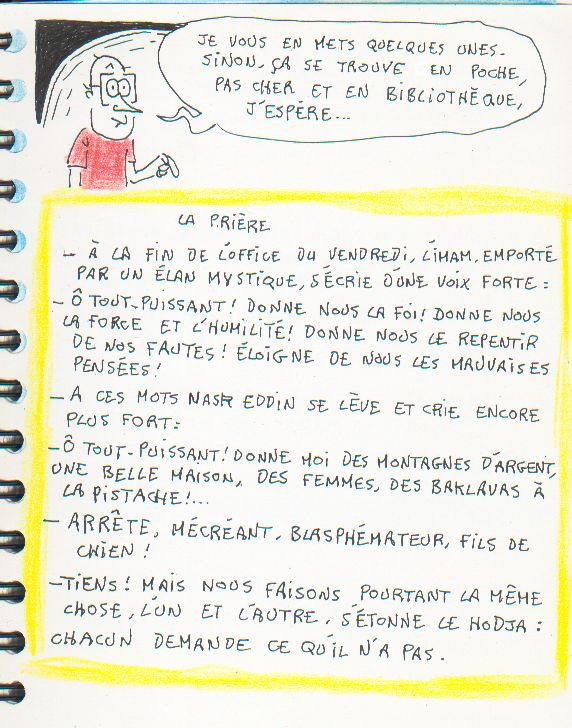 JE VOUS EN METS QUELQUES UNES.
SINON, ÇA SE TROUVE EN POCHE,
PAS CHER ET EN BIBLIOTHÈQUE,
J'ESPÈRE...
LA PRIÈRE
- À LA FIN DE L'OFFICE DU VENDREDI, L'IMAM, EMPORTÉ
PAR UN ÉLAN MYSTIQUE, S'ÉCRIE D'UNE VOIX FORTE :
- Ô TOUT-PUISSANT! DONNE NOUS LA FOI! DONNE NOUS
LA FORCE ET L'HUMILITÉ! DONNE NOUS LE REPENTIR
DE NOS FAUTES! ÉLOIGNE DE NOUS LES MAUVAISES
PENSÉES!
- A CES MOTS NASR EDDIN SE LÈVE ET CRIE ENCORE
PLUS FORT :
- Ô TOUT-PUISSANT! DONNE MOI DES MONTAGNES D'ARGENT,
UNE BELLE MAISON, DES FEMMES, DES BAKLAVAS À
LA PISTACHE!...
- ARRÊTE, MÉCRÉANT, BLASPHÉMATEUR, FILS DE
CHIEN!
- TIENS! MAIS NOUS FAISONS POURTANT LA MÊME
CHOSE, L'UN ET L'AUTRE, S'ÉTONNE LE HODJA :
CHACUN DEMANDE CE QU'IL N'A PAS.